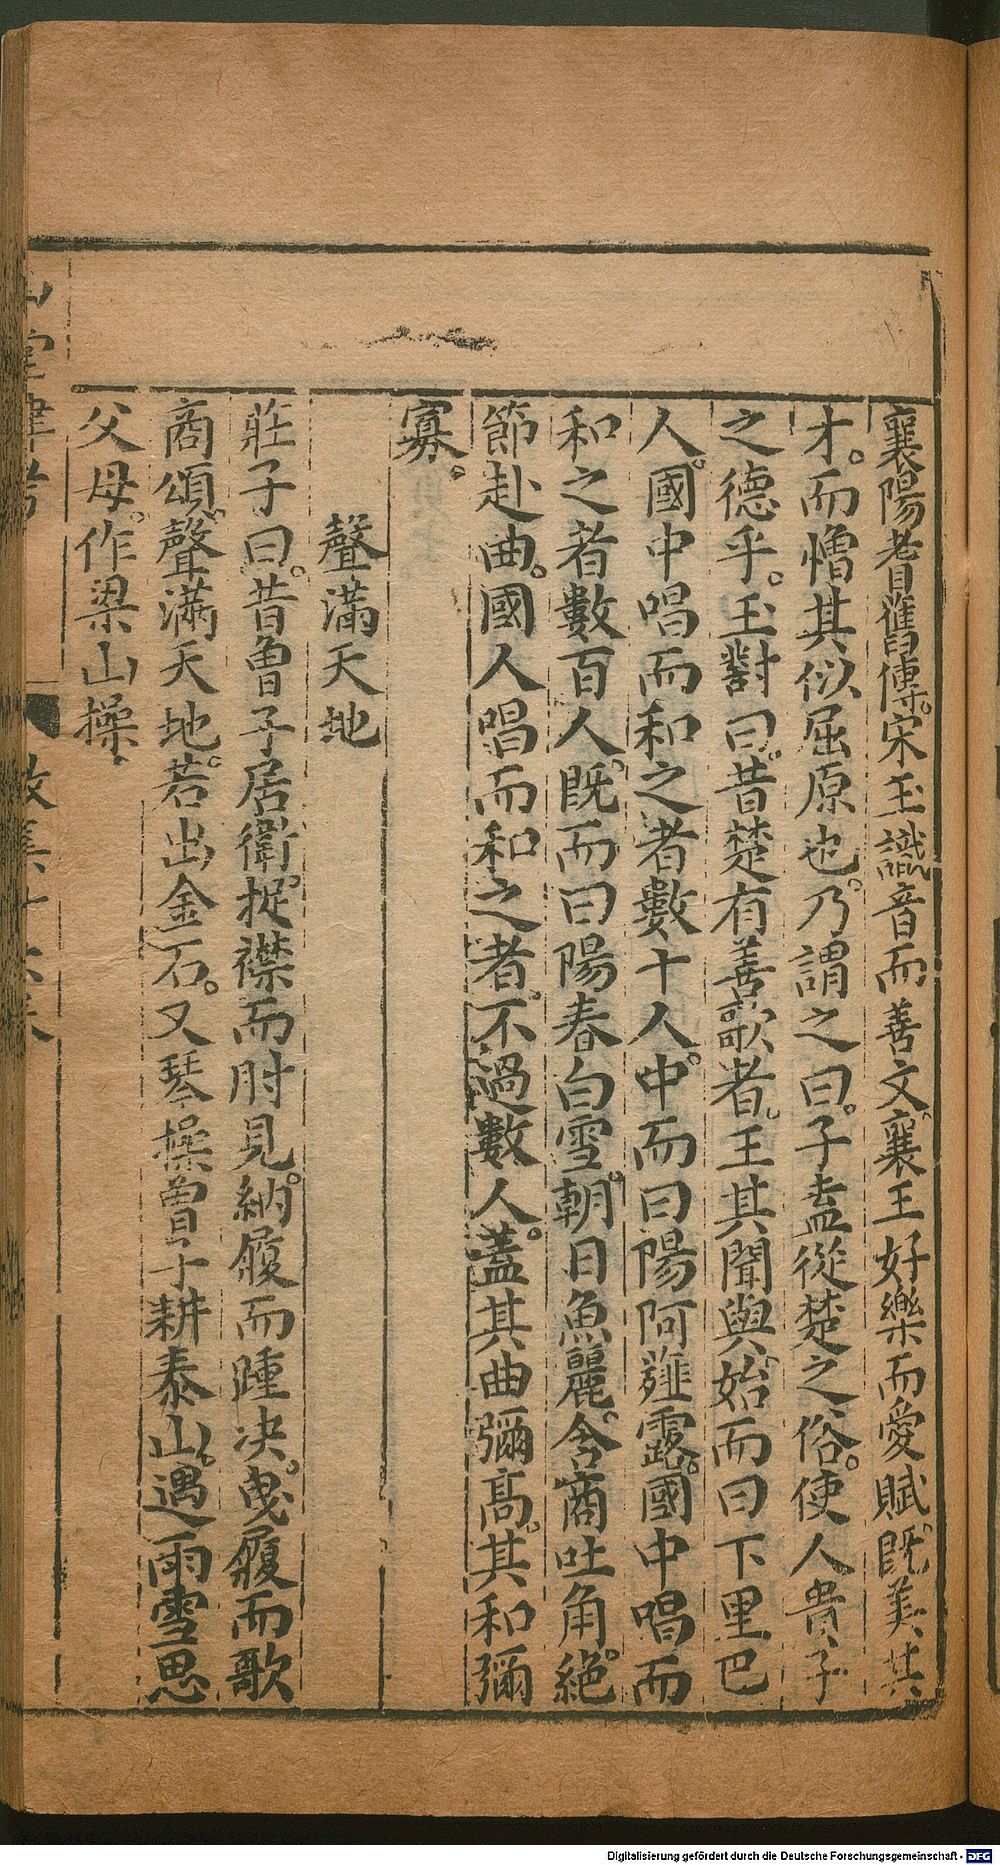 襄陽耆舊傳。宋玉識音而善文。襄王好樂而愛賦。既美其
才。而憎其似屈原也。乃謂之曰。子盍從楚之俗。使人貴子
之德乎。玉對曰。昔楚有善歌者。王其聞與。始而曰下里巴
人。國中唱而和之者數十人。中而曰陽阿薤露。國中唱而
和之者數百人。既而曰陽春白雪。朝日魚麗。含商吐角。絕
節赴曲。國人唱而和之者。不過數人。蓋其曲彌高。其和彌
寡。
聲滿天地
莊子曰。昔曾子居衛。捉襟而肘見。納履而踵决。曳履而歌
商頌。聲滿天地。若出金石。又琴操曾子耕泰山。遇雨雪思
父母。作梁山操、
山堂肆考
Digitalisierung gefördert durch die Deutsche Forschungsgemeinschaft - DFG